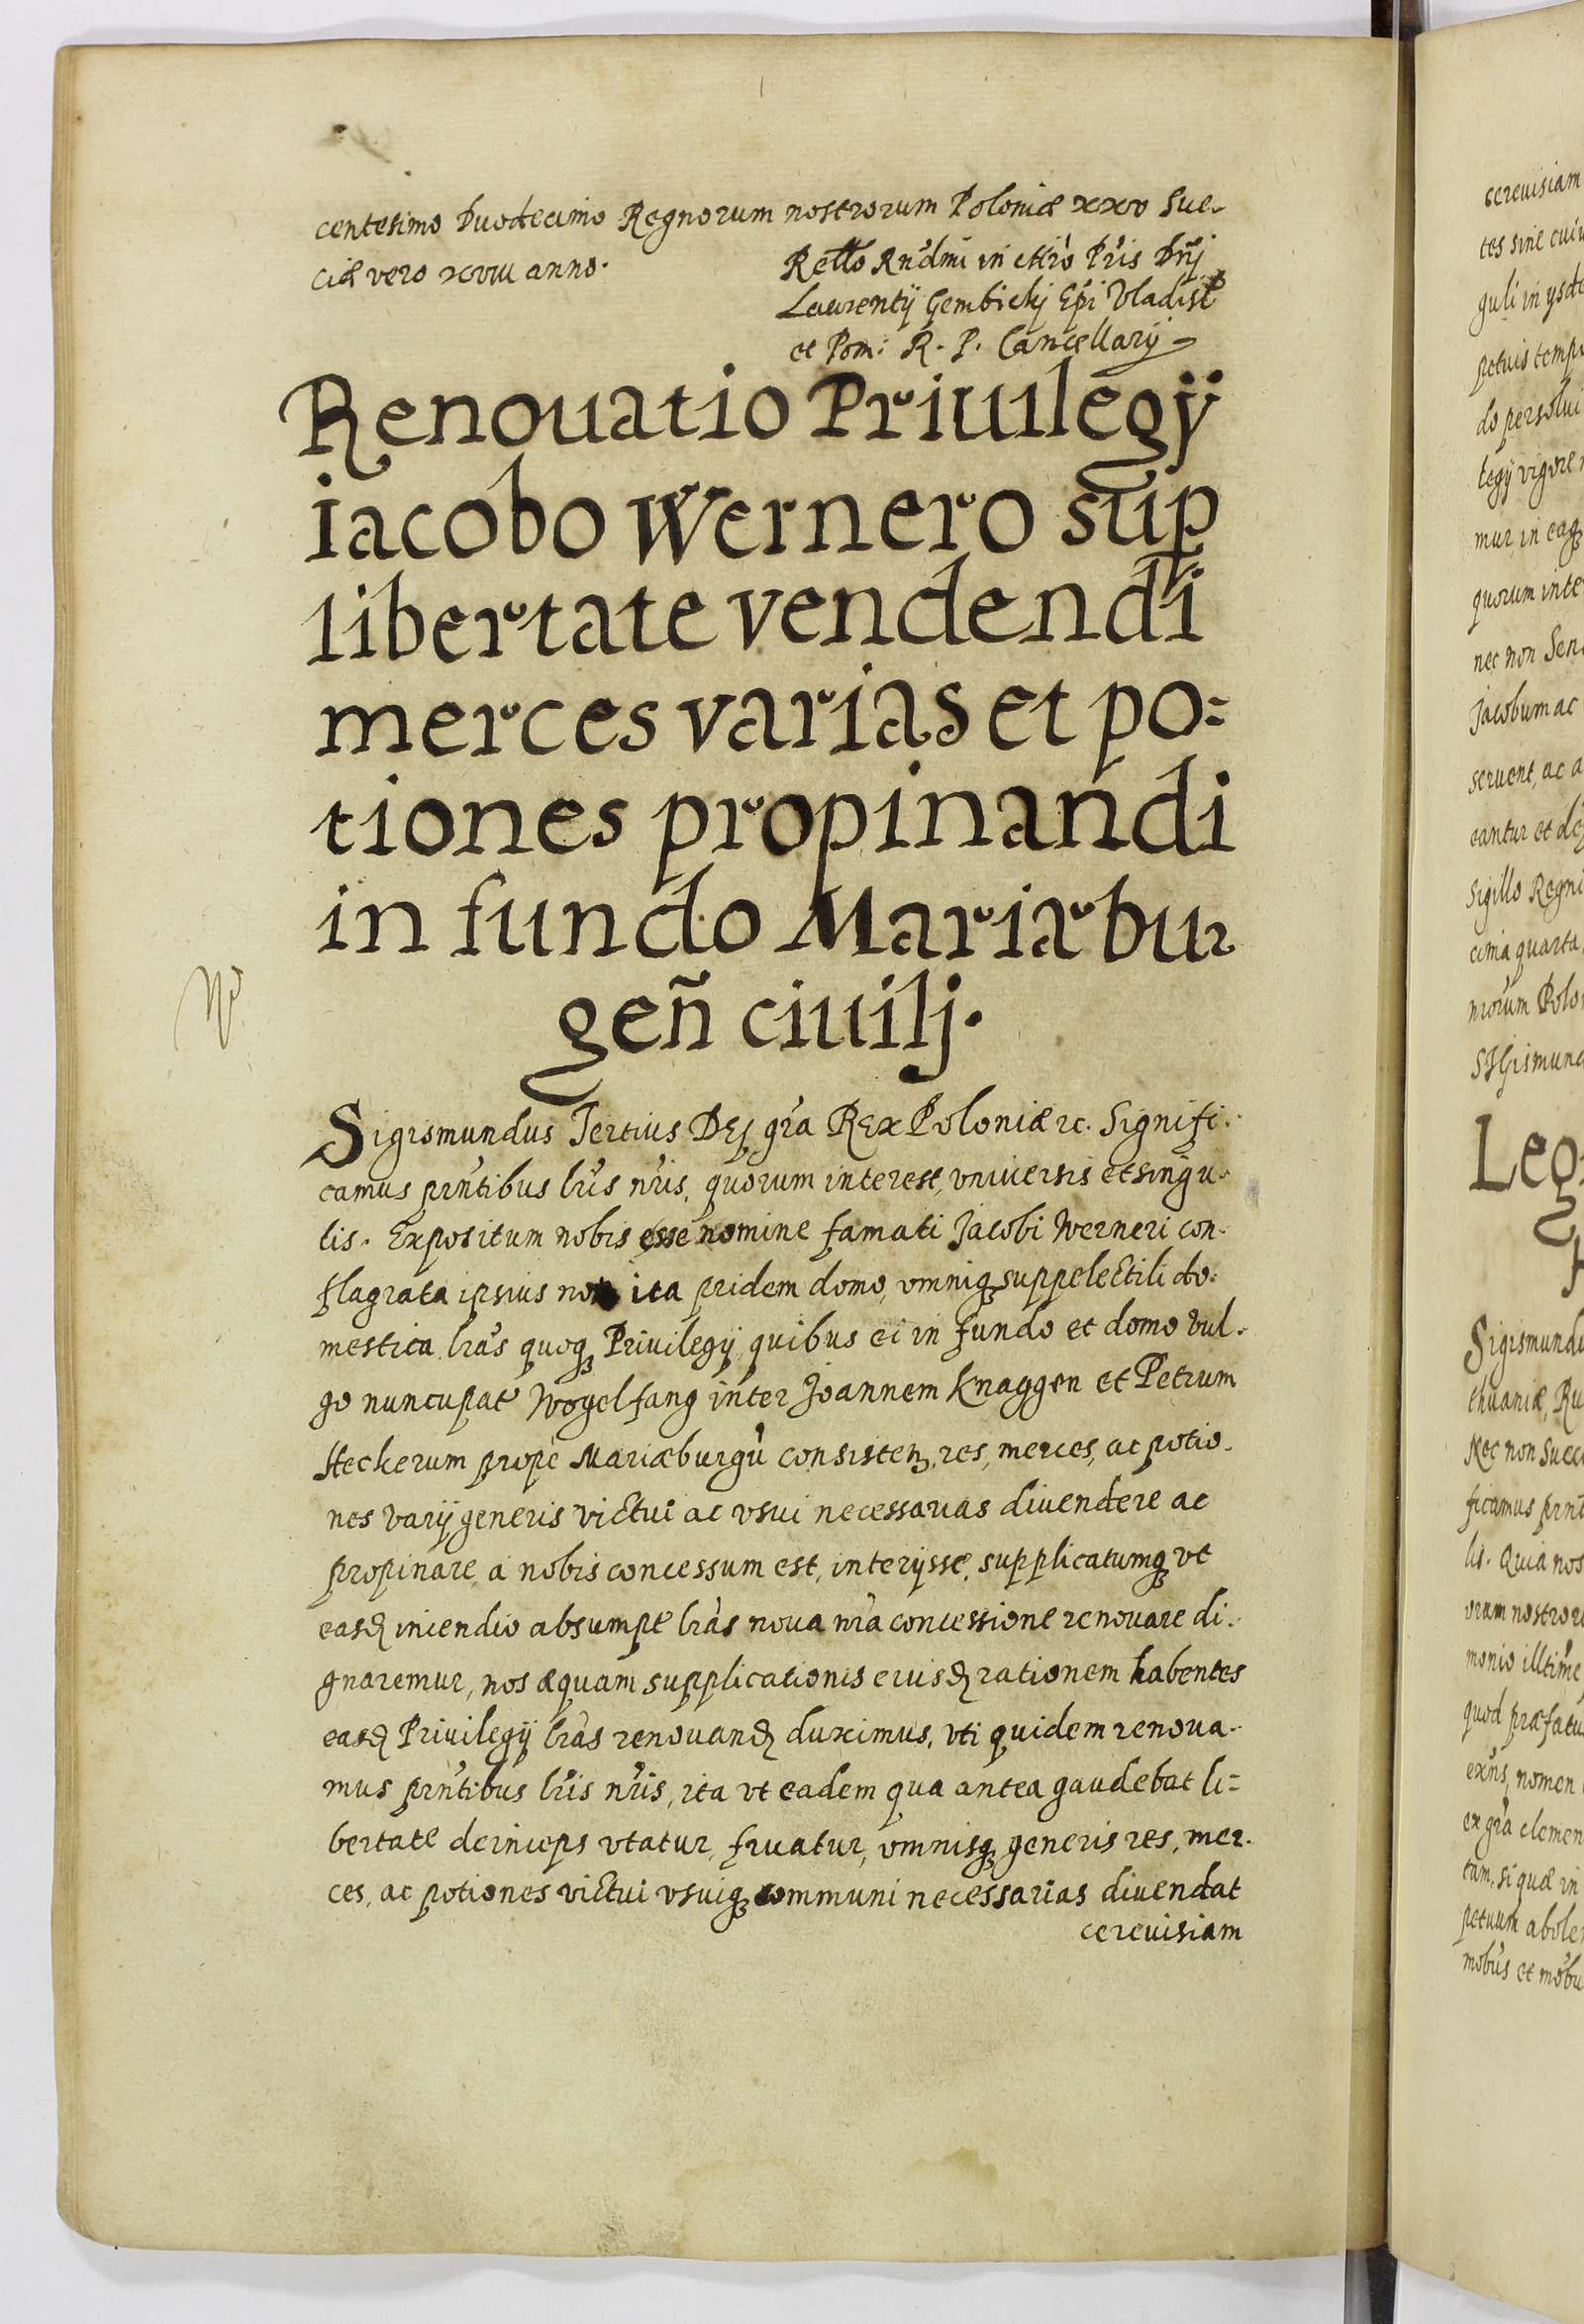 centesimo Duodecimo Regnorum nostrorum Poloniæ xxv Sue-
ciæ vero xviii anno.
Retto Rndmi in Chro Pris Dnj
Laurentij Gembickj Epi Vladisl
et Pom: R. P. Cancellarij
Renouatio Priuilegÿ
iacobo Wernero sup
libertate vendendi
merces varias et po=
tiones propinandi
in fundo Mariæbur
geñ ciuilj.
Sigismundus Tertius Dej gra Rex Poloniæ rc. Signifi-
camus prntibus lris nris, quorum interest, vniuersis et singu-
lis. Expositum nobis esse nomine famati Jacobi Werneri con-
flagrata ipsius non ita pridem domo, omniq suppelectili do-
mestica lras quoq Priuilegij quibus ei in fundo et domo vul-
go nuncupat Wogelfang inter Joannem Knaggen et Petrum
Heckerum prope Mariæburgu consisten, res, merces, ac potio-
nes varij generis victui ac vsui necessarias diuendere ac
propinare a nobis concessum est, interijsse, supplicatumq vt
easd incendio absumpt lras noua nra concessione renouare di-
gnaremur, nos æquam supplicationis eiusd rationem habentes
easd Priuilegij lras renouand duximus, vti quidem renoua-
mus prntibus lris nris, ita vt eadem qua antea gaudebat li=
bertate deinceps vtatur, fruatur, omnisq generis res, mer-
ces, ac potiones victui vsuiq communi necessarias diuendat
cerevisiam
W
cerevisiam
tes sine
guli in
do
mur in eaq
quorum inte
nec non Sen
Jacobum ac
seruent, ac a
eantur et
Sigillo Regni
cima quarta
nrorum Polo
Leg
Sigismund
thuaniæ, Ru
Nec non Suec
ficamus prnt
lis. Quia nos
quod præfatu
exns, nomen
ex gra clemen
tam, si quæ in
petuum abole
mobus et